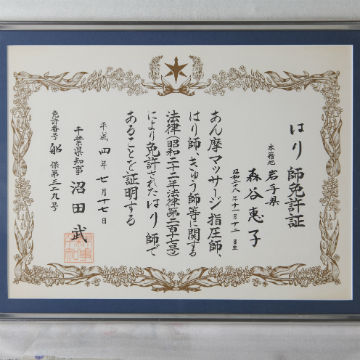 はり師免許証
本籍地 岩手県
森谷恵子
昭和二十八年十一月十一日生
あん摩マッサージ指圧師、
はり師、きゅう師等に関する
法律(昭和二十二年法律第二百十七号)
により免許されたはり師で
あることを証明する
平成四年七月十七日
千葉県知事 沼田武
免許番号 船保第三二九号